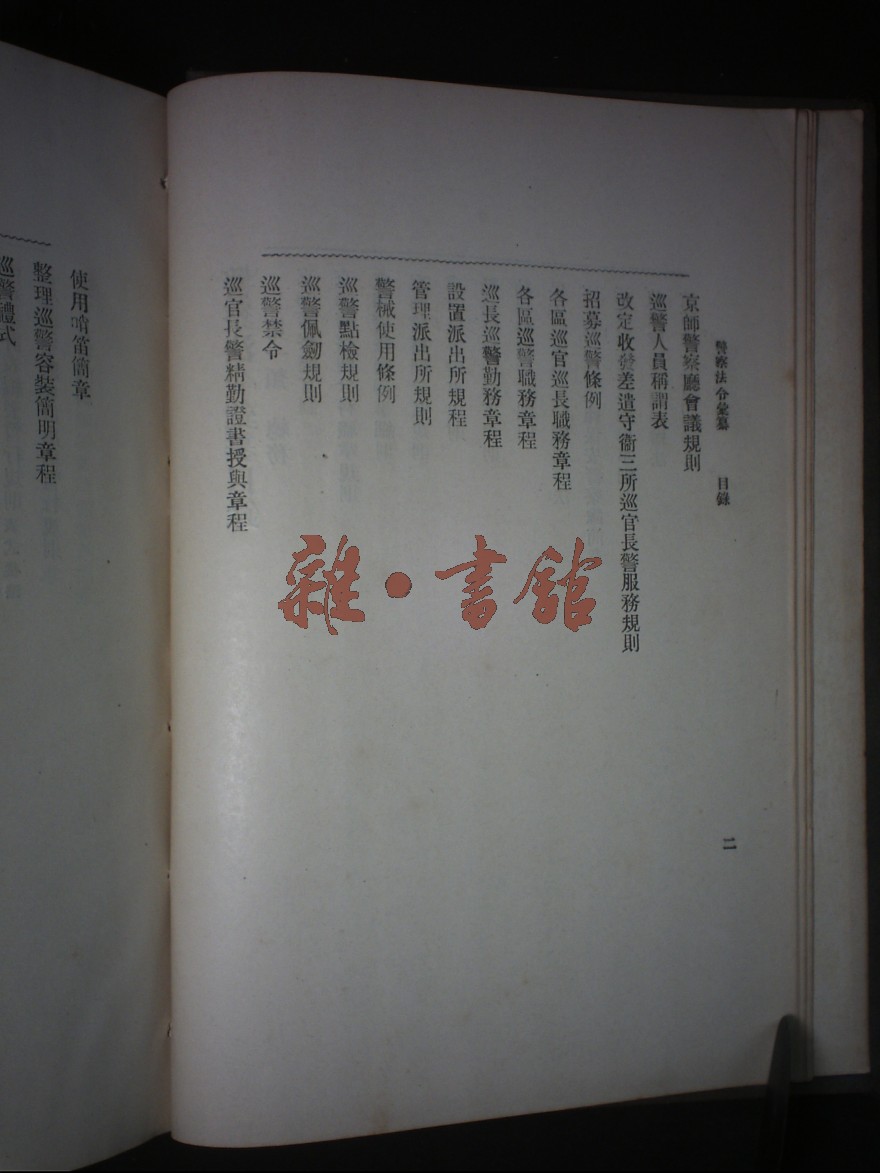 警察法令彙纂 目錄 二
京師警察廳會議規則
巡警人員稱謂表
改定收發差遣守衛三所巡官長警服務規則
招募巡警條例
各區巡官巡長職務章程
各區巡警職務章程
巡長巡警勤務章程
設置派出所規程
管理派出所規則
警械使用條例
巡警點檢規則
巡警佩劒規則
巡警禁令
巡官長警精勤證書授與章程
使用哨笛簡章
整理巡警容裝簡明章程
巡警禮式
雜·書館